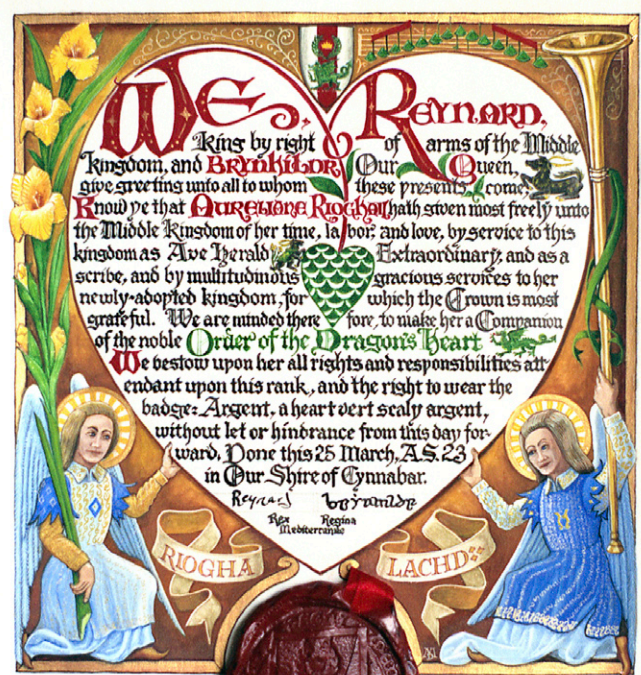 WE, REYNARD,
King by right of arms of the Middle
kingdom, and BRYNHILDR Our Queen,
give greeting unto all to whom these presents come.
Know ye that AURELIANE RIOGHAIL hath given most freely unto
the Middle Kingdom of her time, labor, and love, by service to this
kingdom as Ave Herald Extraordinary, and as a
scribe, and by multitudinous gracious services to her
newly-adopted kingdom, for which the Crown is most
grateful. We are minded therefore, to make her a Companion
of the noble Order of the Dragon's Heart
We bestow upon her all rights and responsibilities att
endant upon this rank, and the right to wear the
badge: Argent, a heart vert scaly argent,
without let or hindrance from this day for-
ward. Done this 25 March, A.S. 23
in Our Shire of Cynnabar.
Reynard
Rex Regina
RIOGHA LACHD